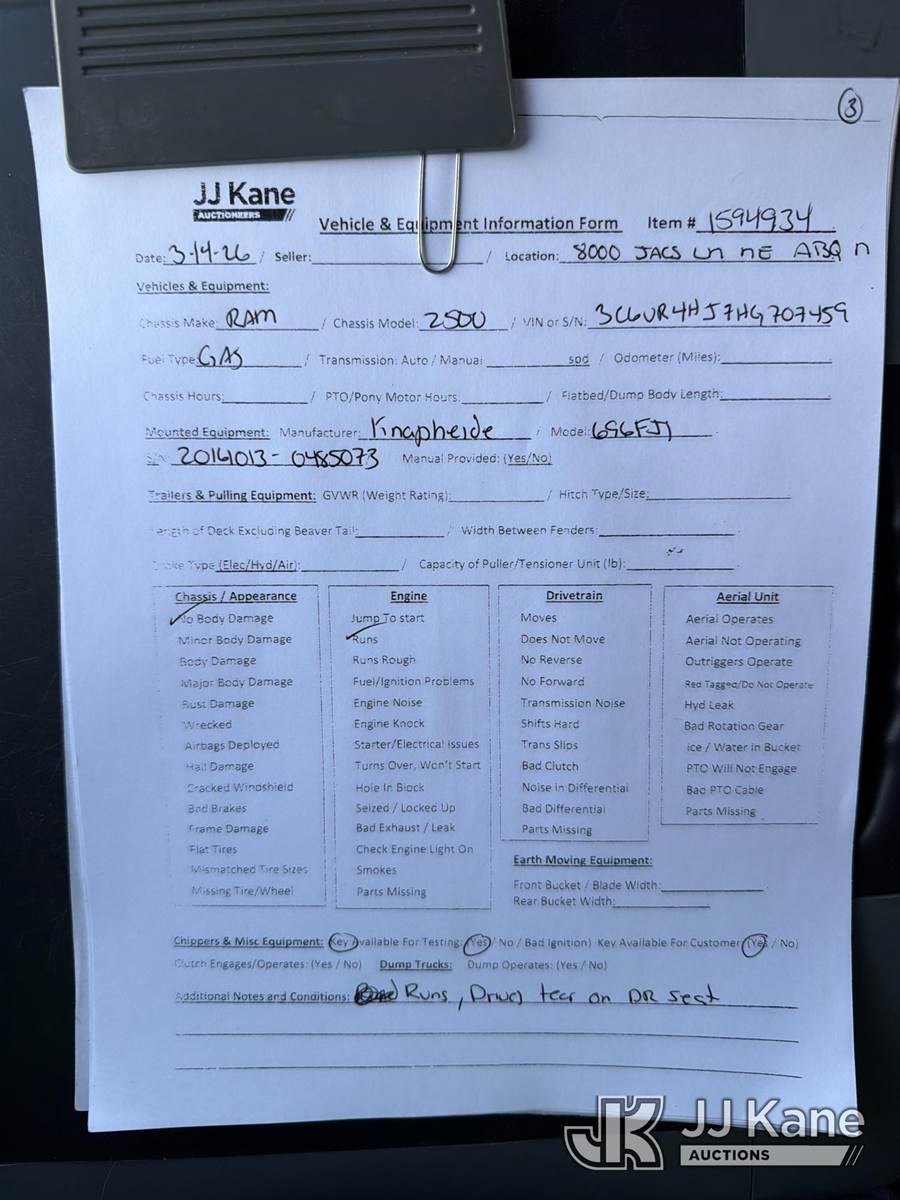 3
JJ Kane
AUCTIONEERS
Vehicle & Equipment Information Form Item # 1594934
Date: 3-14-26 / Seller: / Location: 8000 JACS LN NE ABQ N
Vehicles & Equipment:
Chassis Make: RAM / Chassis Model: 2500 / VIN or S/N: 3C6UR4HJ7HG707459
Fuel Type: GAS / Transmission: Auto / Manual spd / Odometer (Miles):
Chassis Hours: / PTO/Pony Motor Hours: / Flatbed/Dump Body Length:
Mounted Equipment: Manufacturer: Knapheide / Model: 696FJ
S/N: 20161013-0485073 Manual Provided: (Yes/No)
Trailers & Pulling Equipment: GVWR (Weight Rating): / Hitch Type/Size:
Length of Deck Excluding Beaver Tail: / Width Between Fenders:
Brake Type (Elec/Hyd/Air): / Capacity of Puller/Tensioner Unit (lb):
Chassis / Appearance Engine Drivetrain Aerial Unit
No Body Damage Jump To start Moves Aerial Operates
Minor Body Damage Runs Does Not Move Aerial Not Operating
Body Damage Runs Rough No Reverse Outriggers Operate
Major Body Damage Fuel/Ignition Problems No Forward Red Tagged/Do Not Operate
Rust Damage Engine Noise Transmission Noise Hyd Leak
Wrecked Engine Knock Shifts Hard Bad Rotation Gear
Airbags Deployed Starter/Electrical issues Trans Slips Ice / Water in Bucket
Hail Damage Turns Over, Won't Start Bad Clutch PTO Will Not Engage
Cracked Windshield Hole In Block Noise in Differential Bad PTO Cable
Bad Brakes Seized / Locked Up Bad Differential Parts Missing
Frame Damage Bad Exhaust / Leak Parts Missing
Flat Tires Check Engine Light On Earth Moving Equipment:
Mismatched Tire Sizes Smokes Front Bucket / Blade Width:
Missing Tire/Wheel Parts Missing Rear Bucket Width:
Chippers & Misc Equipment: Key Available For Testing: (Yes / No / Bad Ignition) Key Available For Customer (Yes / No)
Clutch Engages/Operates: (Yes / No) Dump Trucks: Dump Operates: (Yes / No)
Additional Notes and Conditions: Runs, Drives tear on DR seat
JK JJ Kane
AUCTIONS